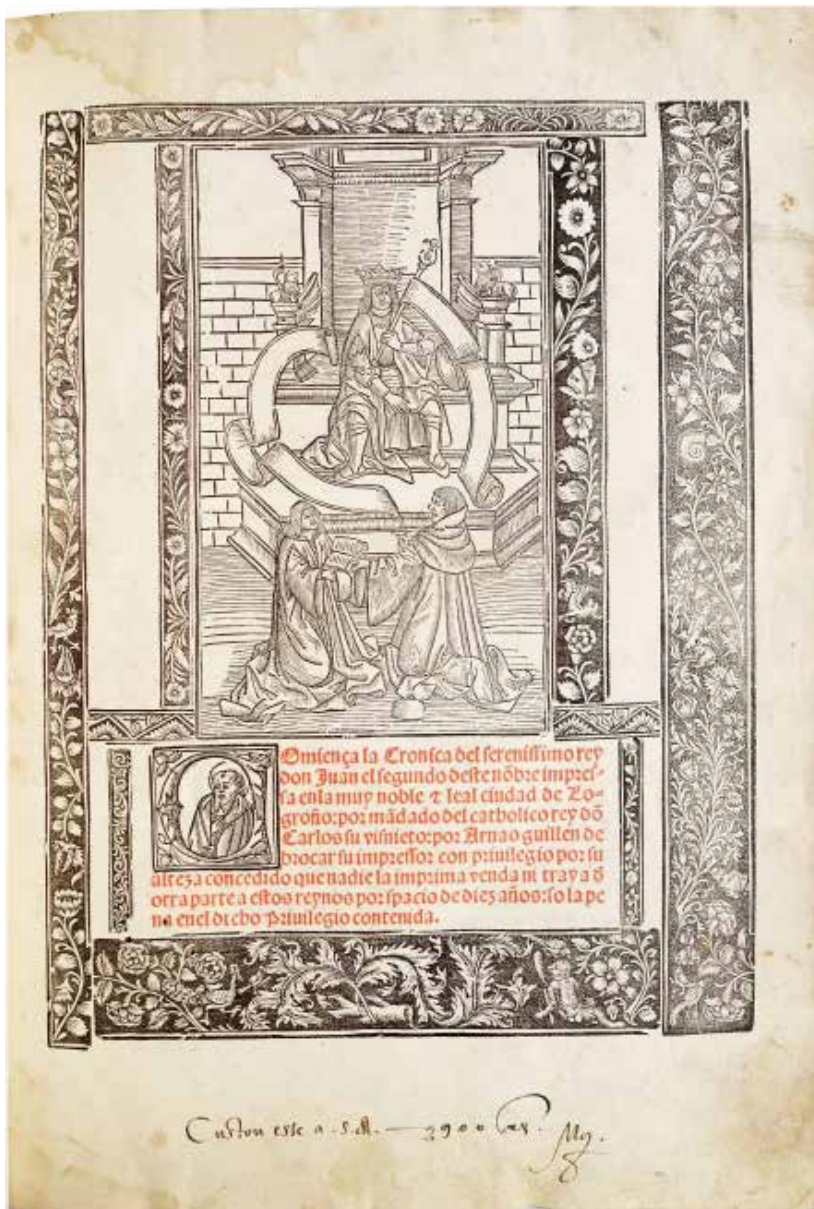 Comiença la Cronica del serenissimo rey
don Juan el segundo deste nõbre impres-
sa enla muy noble ⁊ leal ciudad de Lo-
groño: por mãdado del catholico rey dõ
Carlos su visnieto: por Arnao guillen de
brocar su impressor con priuilegio por su
alteza concedido que nadie la imprima venda ni traya d̕
otra parte a estos reynos por spacio de diez años: so la pe
na enel dicho Priuilegio contenida.
Custou este a .s.